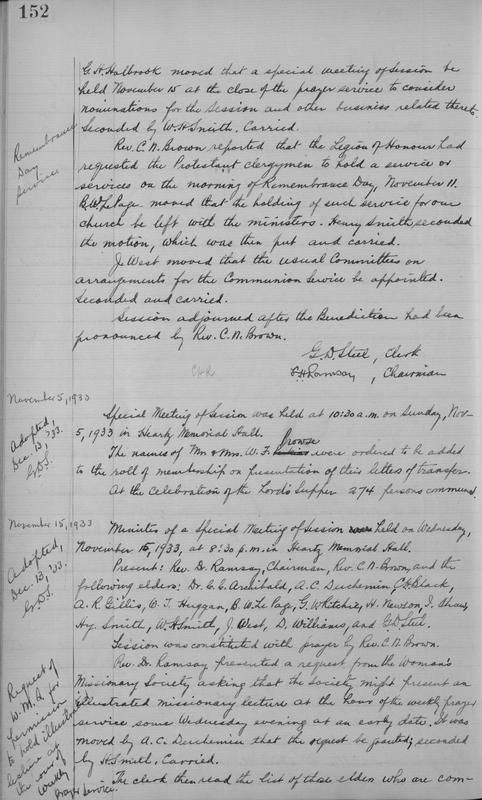 152
G.H. Holbrook moved that a special meeting of Session be
held November 15 at the close of the prayer service to consider
nominations for the Session and other business related thereto.
Seconded by W.H. Smith. Carried.
Remembrance
Day
Service
Rev. C.N. Brown reported that the Legion of Honour had
requested the Protestant clergymen to hold a service or
services on the morning of Remembrance Day, November 11.
B.W. LePage moved that the holding of such service for our
church be left with the ministers. Henry Smith seconded
the motion, which was then put and carried.
J. West moved that the usual Committees on
arrangements for the Communion Service be appointed.
Seconded and carried.
Session adjourned after the Benediction had been
pronounced by Rev. C.N. Brown.
G.D. Steel, Clerk
Ramsay, Chairman
November 5, 1933
Adopted,
Dec. 13, '33.
G.D.S.
Special Meeting of Session was held at 10:20 a.m. on Sunday, Nov-
5, 1933 in Heartz Memorial Hall.
The names of Mr. & Mrs. W. F. Prowse were ordered to be added
to the roll of membership on presentation of their letters of transfer.
At the celebration of the Lord's Supper 274 persons communed.
November 15, 1933
Adopted,
Dec. 13, '33.
G.D.S.
Minutes of a Special Meeting of Session held on Wednesday,
November 15, 1933, at 8:30 p.m. in Heartz Memorial Hall.
Present: Rev. Dr. Ramsay, Chairman, Rev. C.N. Brown, and the
following elders: Dr. C.C. Archibald, A.C. Duchemin, Black,
A.R. Gillis, W.J. Huggan, B.W. LePage, G. Whitchie, H. Newson, J. Shaw,
Hy. Smith, W.H. Smith, J. West, D. Williams, and G.D. Steel.
Session was constituted with prayer by Rev. C.N. Brown.
Request of
W.M.S. for
permission
to hold illustrated
lecture at
the hour of
Weekly
Prayer Service.
Rev. Dr. Ramsay presented a request from the Woman's
Missionary Society asking that the Society might present an
illustrated missionary lecture at the hour of the weekly prayer
service some Wednesday evening at an early date. It was
moved by A.C. Duchemin that the request be granted; seconded
by H. Smith. Carried.
The clerk then read the list of those elders who are com-